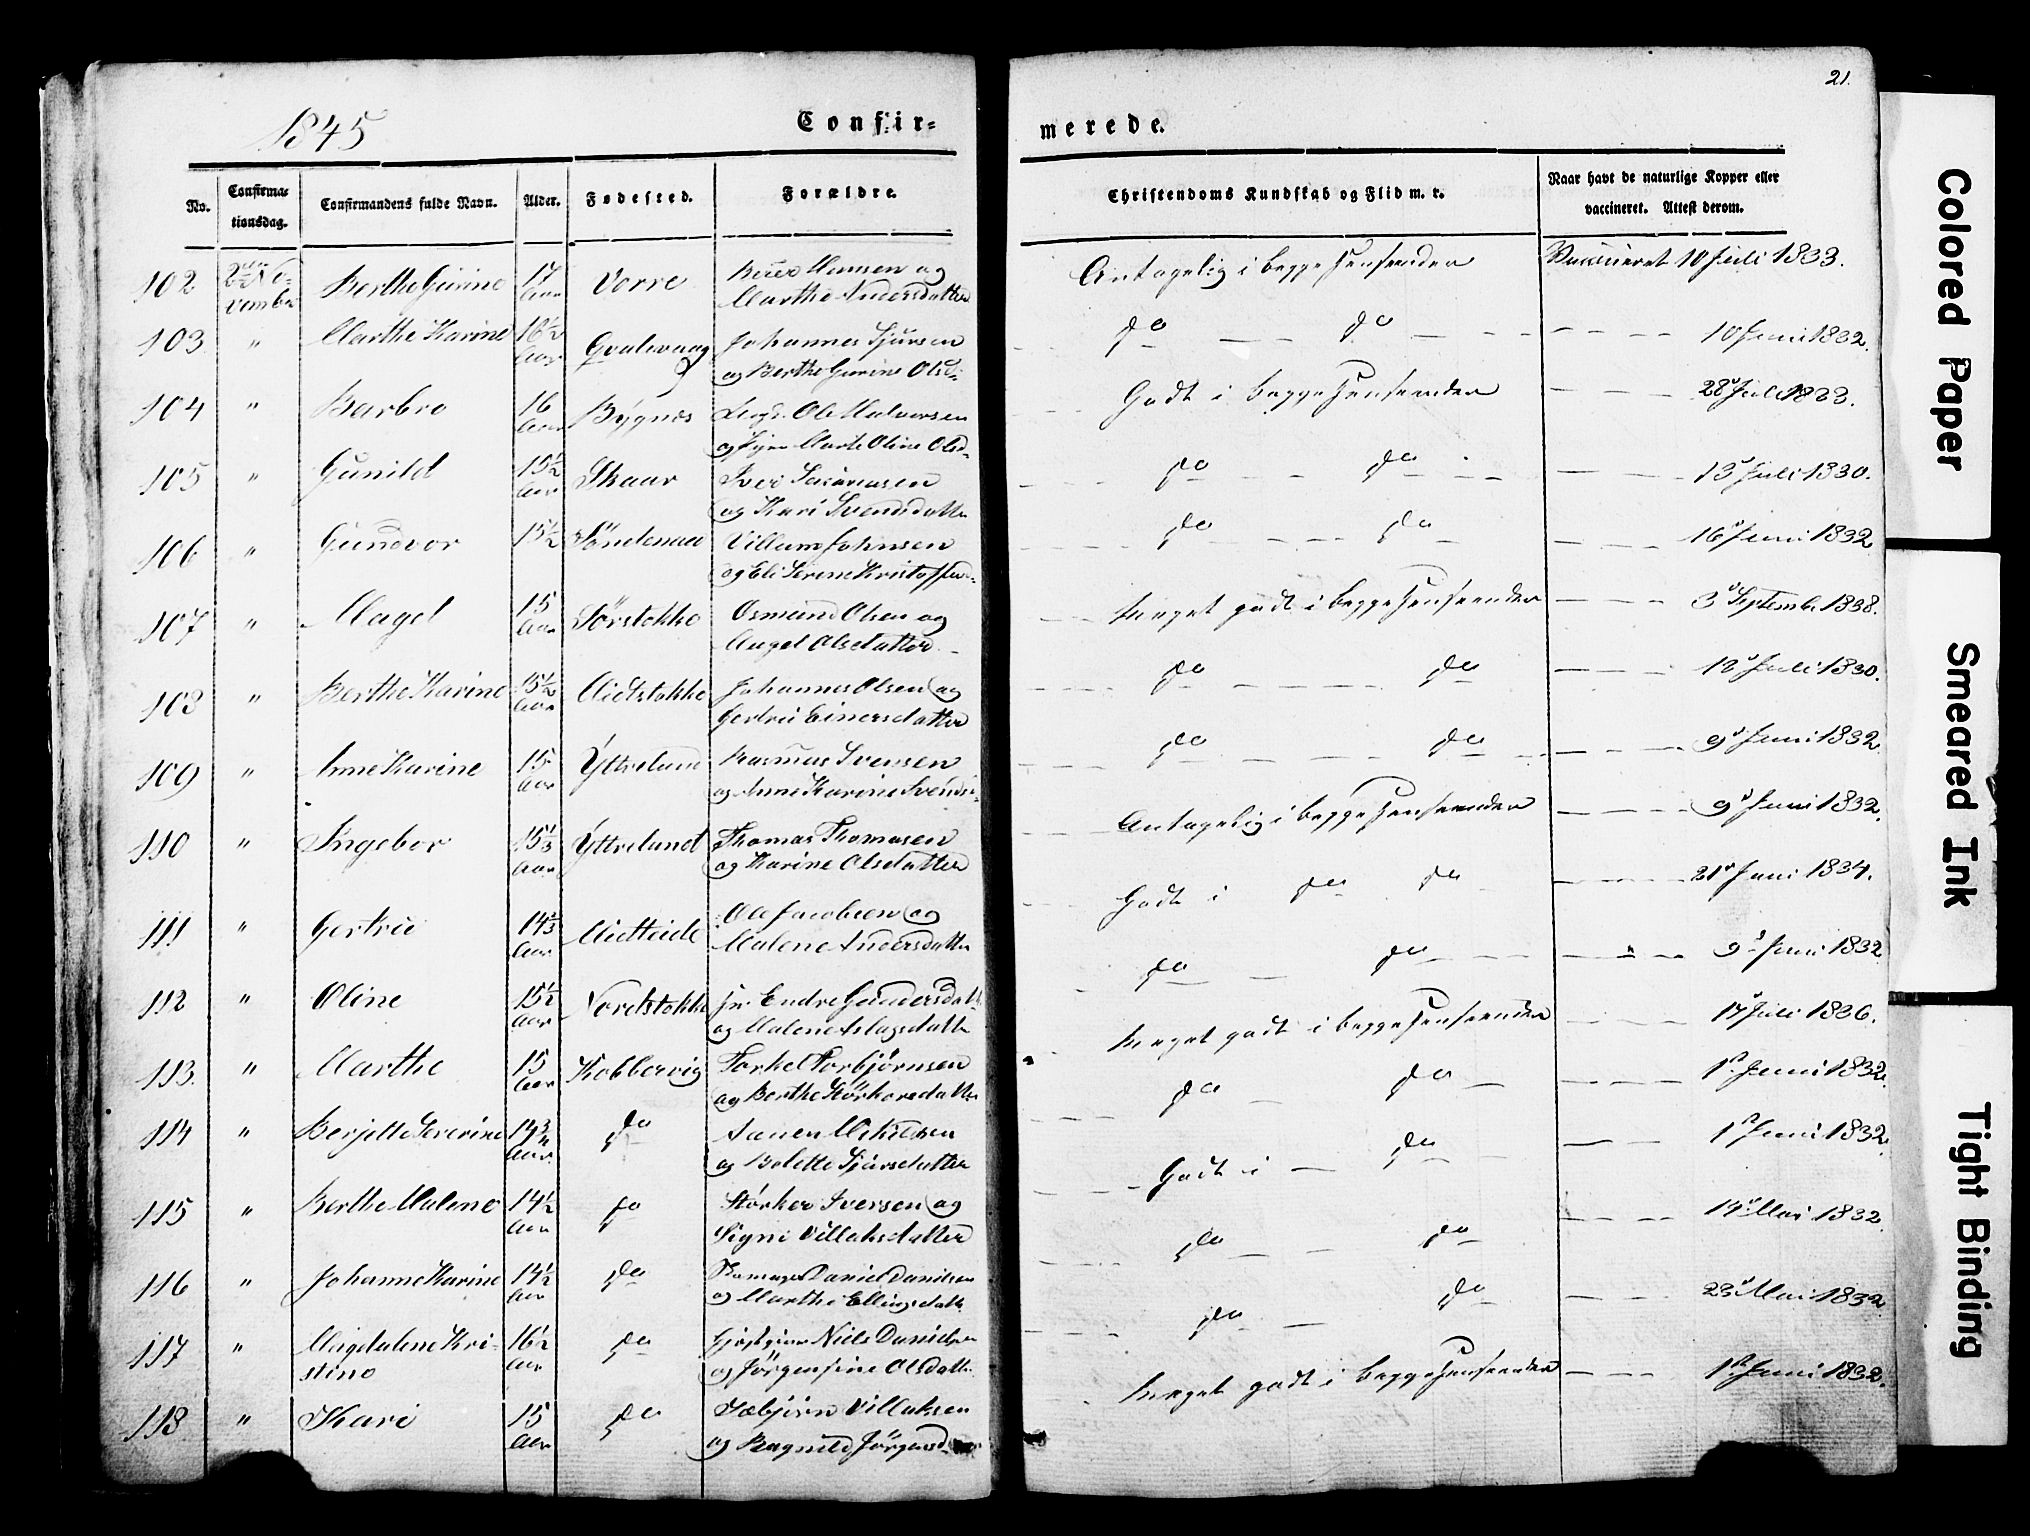 21.
1845
Confir-
merede.
No.
Confirma-
tionsdag.
Confirmandens fulde Navn.
Alder.
Fødested.
Forældre.
Christendoms Kundskab og Flid m. v.
Naar havt de naturlige Kopper eller
vaccineret. Attest derom.
102 2den No- Berthe Gurine 17 Vorre Hansen og Antagelig i begge Henseender Vaccineret 10 Juli 1833.
vember Aar Marthe Andersdatter
103 " Marthe Karine 16½ Gvalevaag Johannes Sjursen do do 10 Juni 1832.
Aar og Berthe Gurine Olsd:
104 " Barbro 16 Bygnes Ole Halvorsen Godt i begge Henseender 28 Juli 1833.
Aar og Marte Oline Olsd.
105 " Gunild 15½ Skaar Iver do do 13 Juli 1830.
Aar og Kari Svendsdatter
106 " Gundvor 15½ Søndenaa Villum Johnsen do do 16 Juni 1832
og Eli Serene
107 " Magel 15 Sørstokke Osmund Olsen og meget godt i begge Henseender 3 Septemb. 1838.
Aar Magel Olsdatter
108 " Berthe Karine 15½ Midtstokke Johannes Olsen og do do 12 Juli 1830.
Aar Gertrue Einersdatter
109 " Anne Karine 15 Ytreland Rasmus Svensen do do 9 Juni 1832
Aar og Anne Karine
110 " Ingebor 15⅓ Ytreland Thomas Thomasen Antagelig i begge Henseender 9 Juni 1832.
Aar og Karine Olsdatter
111 " Gertrue 14⅔ Midteide Ole Jacobsen og Godt i do do 21 Juni 1834.
Aar Malene Andersdatter
112 " Oline 15½ Nordstokke Endre do do 9 Juni 1832
Aar og Malene Aslagsdatter
113. " Marthe 15 Kobbervig Torkel Torbjørnsen meget godt i begge Henseender 17 Juli 1836.
Aar og Berthe Størkoresdatter
114 " Berjitte Severine 14¾ do Mikkelsen do do 1ste Juni 1832.
Aar og Bolette Sjursdatter
115 " Berthe Malene 14½ do Størker Iversen og Godt i do 1ste Juni 1832.
Aar Signi Villaksdatter
116 " Johanne Karine 14½ do Daniel Danielsen do do 14 Mai 1832.
Aar og Marthe Ellingsdatter
117 " Magdalene Kri- 16½ do Niels Danielsen do do 23 Mai 1832
stine Aar og Jørgensine Olsdatter
118 " Kari 15 do Sæbjørn Villaksen meget godt i begge Henseender 1ste Juni 1832.
Aar og Ragnild Jørgensd
Colored Paper
Smeared Ink
Tight Binding